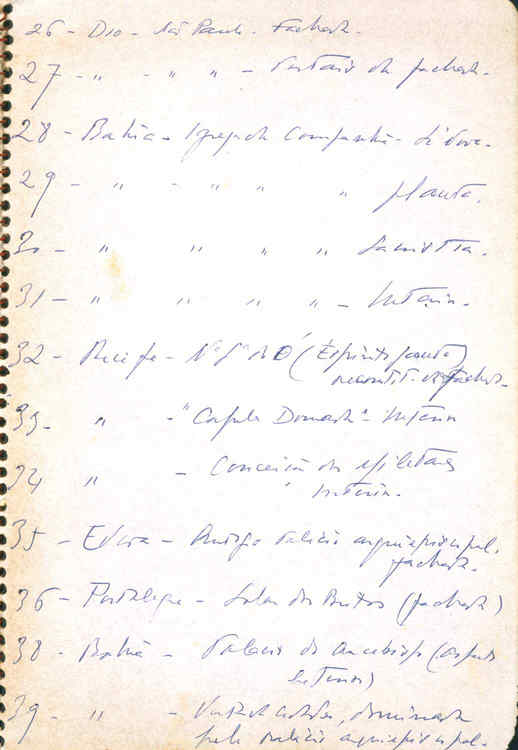 26 - Dio - São Paulo. Fachada.
27 - " - " " - da fachada.
28 - Bahia - Igreja da Companhia -
29 - " - " " " planta.
30 - " " " " Sacristia.
31 - " " " " - Interior.
32 - Recife - Nª Sª do Ó (Espírito Santo)
fachada.
33 - " - "Capela Dourada" - Interior
34 " - Conceição dos Militares
Interior.
35 - Évora - Antigo Palácio arquiepiscopal.
fachada.
36 - Portalegre - Solar dos (fachada)
38 - Bahia - Palácio do Arcebispo (aspecto
interior)
39 - " - dominada
pelo palácio arquiepiscopal.